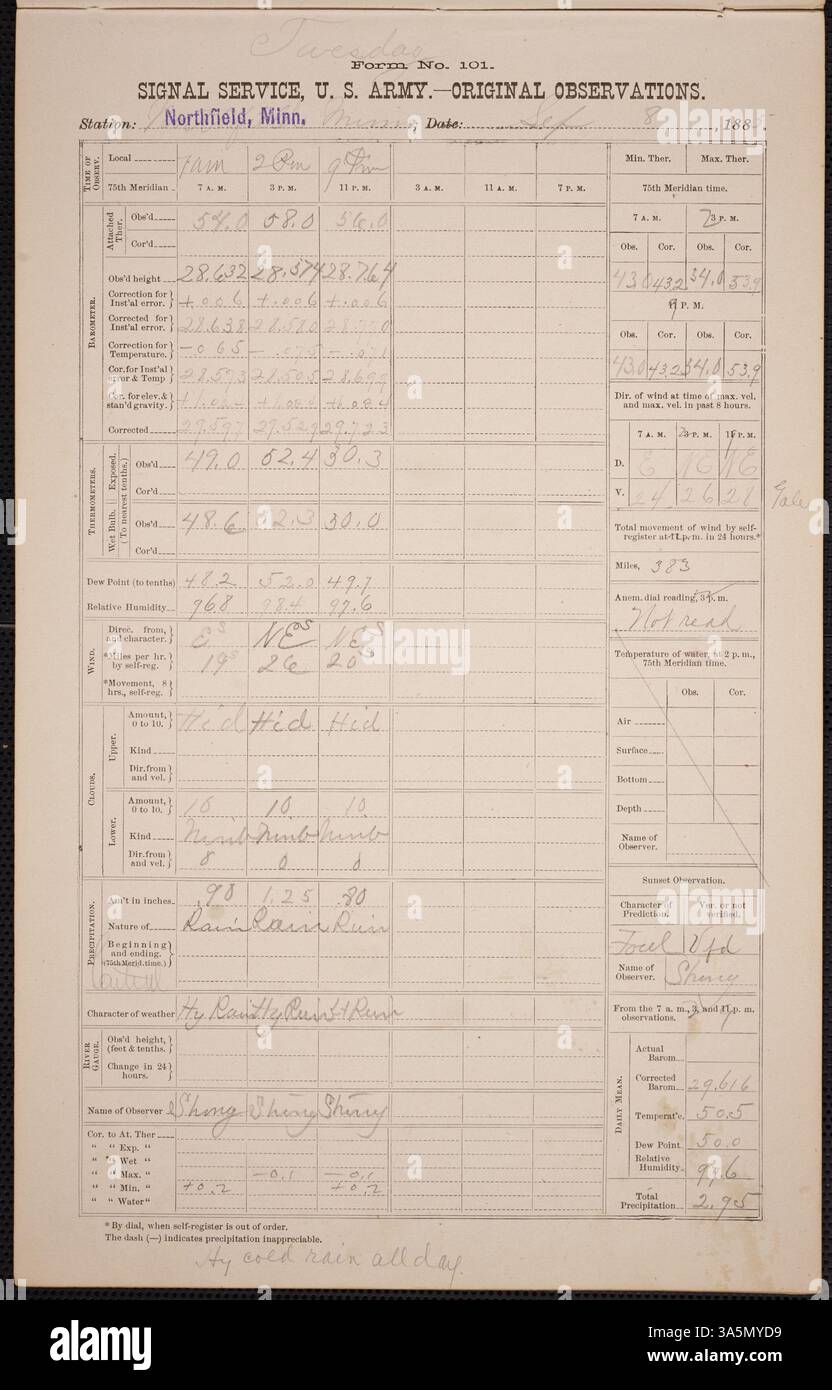 Tuesday
Form No. 101.
SIGNAL SERVICE, U. S. ARMY.—ORIGINAL OBSERVATIONS.
Station: Northfield, Minn. , Date: Sep 8 , 188
TIME OF OBSERV.
Local 7am 2 Pm 9 Pm
75th Meridian 7 A. M. 3 P. M. 11 P. M. 3 A. M. 11 A. M. 7 P. M.
BAROMETER.
Attached Ther.
Obs'd 54.0 58.0 56.0
Cor'd
Obs'd height 28.632 28.574 28.764
Correction for Inst'al error. +.006 +.006 +.006
Corrected for Inst'al error. 28.638 28.580 28.770
Correction for Temperature. -065 -.075 -.071
Cor. for Inst'al error & Temp 28.573 28.505 28.699
Cor. for elev. & stan'd gravity.
Corrected 29.597 29.529 29.723
THERMOMETERS.
(To nearest tenths.)
Exposed.
Obs'd 49.0 52.4
Cor'd
Wet Bulb.
Obs'd 48.6
Cor'd
Dew Point (to tenths) 48.2 52.0 49.7
Relative Humidity 96.8 98.4 97.6
WIND.
Direc. from, and character. E NE NE
*Miles per hr. by self-reg. 19 26 20
*Movement, 8 hrs., self-reg.
CLOUDS.
Upper.
Amount, 0 to 10. Hid Hid Hid
Kind
Dir. from and vel.
Lower.
Amount, 0 to 10. 10 10 10
Kind Nimb Nimb Nimb
Dir. from and vel. 0 0
PRECIPITATION.
Am't in inches .90 1.25 .80
Nature of Rain Rain Rain
Beginning and ending. (75th Merid. time.)
Character of weather Hy Rain Hy Rain Rain
RIVER GAUGE.
Obs'd height, (feet & tenths.
Change in 24 hours.
Name of Observer
Cor. to At. Ther
" " Exp. "
" " Wet "
" " Max. " -0.1 -0.1
" " Min. " +0.2 +0.2
" " Water "
* By dial, when self-register is out of order.
The dash (—) indicates precipitation inappreciable.
Hy cold rain all day.
Min. Ther. Max. Ther.
75th Meridian time.
7 A. M. 3 P. M.
Obs. Cor. Obs. Cor.
43.0 43.2 54.0 53.9
P. M.
Obs. Cor. Obs. Cor.
43.0 43.2 54.0 53.9
Dir. of wind at time of max. vel. and max. vel. in past 8 hours.
7 A. M. P. M. P. M.
D. E NE NE
V. 24 26 28 Gale
Total movement of wind by self-register at 11 p. m. in 24 hours.*
Miles, 383
Anem. dial reading, 3 p. m.
Not read
Temperature of water, at 2 p. m., 75th Meridian time.
Obs. Cor.
Air
Surface
Bottom
Depth
Name of Observer.
Sunset Observation.
Character of Prediction. Ver. or not verified.
Name of Observer.
From the 7 a. m., 3, and 11 p. m. observations.
DAILY MEAN.
Actual Barom.
Corrected Barom 29.616
Temperat'e. 50.5
Dew Point 50.0
Relative Humidity
Total Precipitation 2.95
alamy
Image ID: 3A5MYD9
www.alamy.com